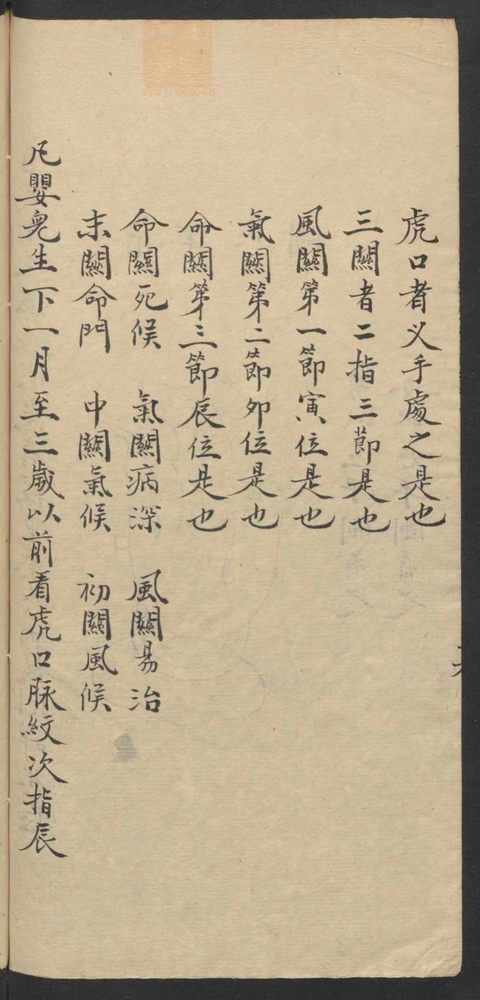 虎口者乂手處之是也
三關者二指三節是也
風關第一節寅位是也
氣關第二節卯位是也
命關第三節辰位是也
命關死候　氣關病深　風關易治
末關命門　中關氣候　初關風候
凡嬰兒生下一月至三歲以前看虎口脉紋次指辰